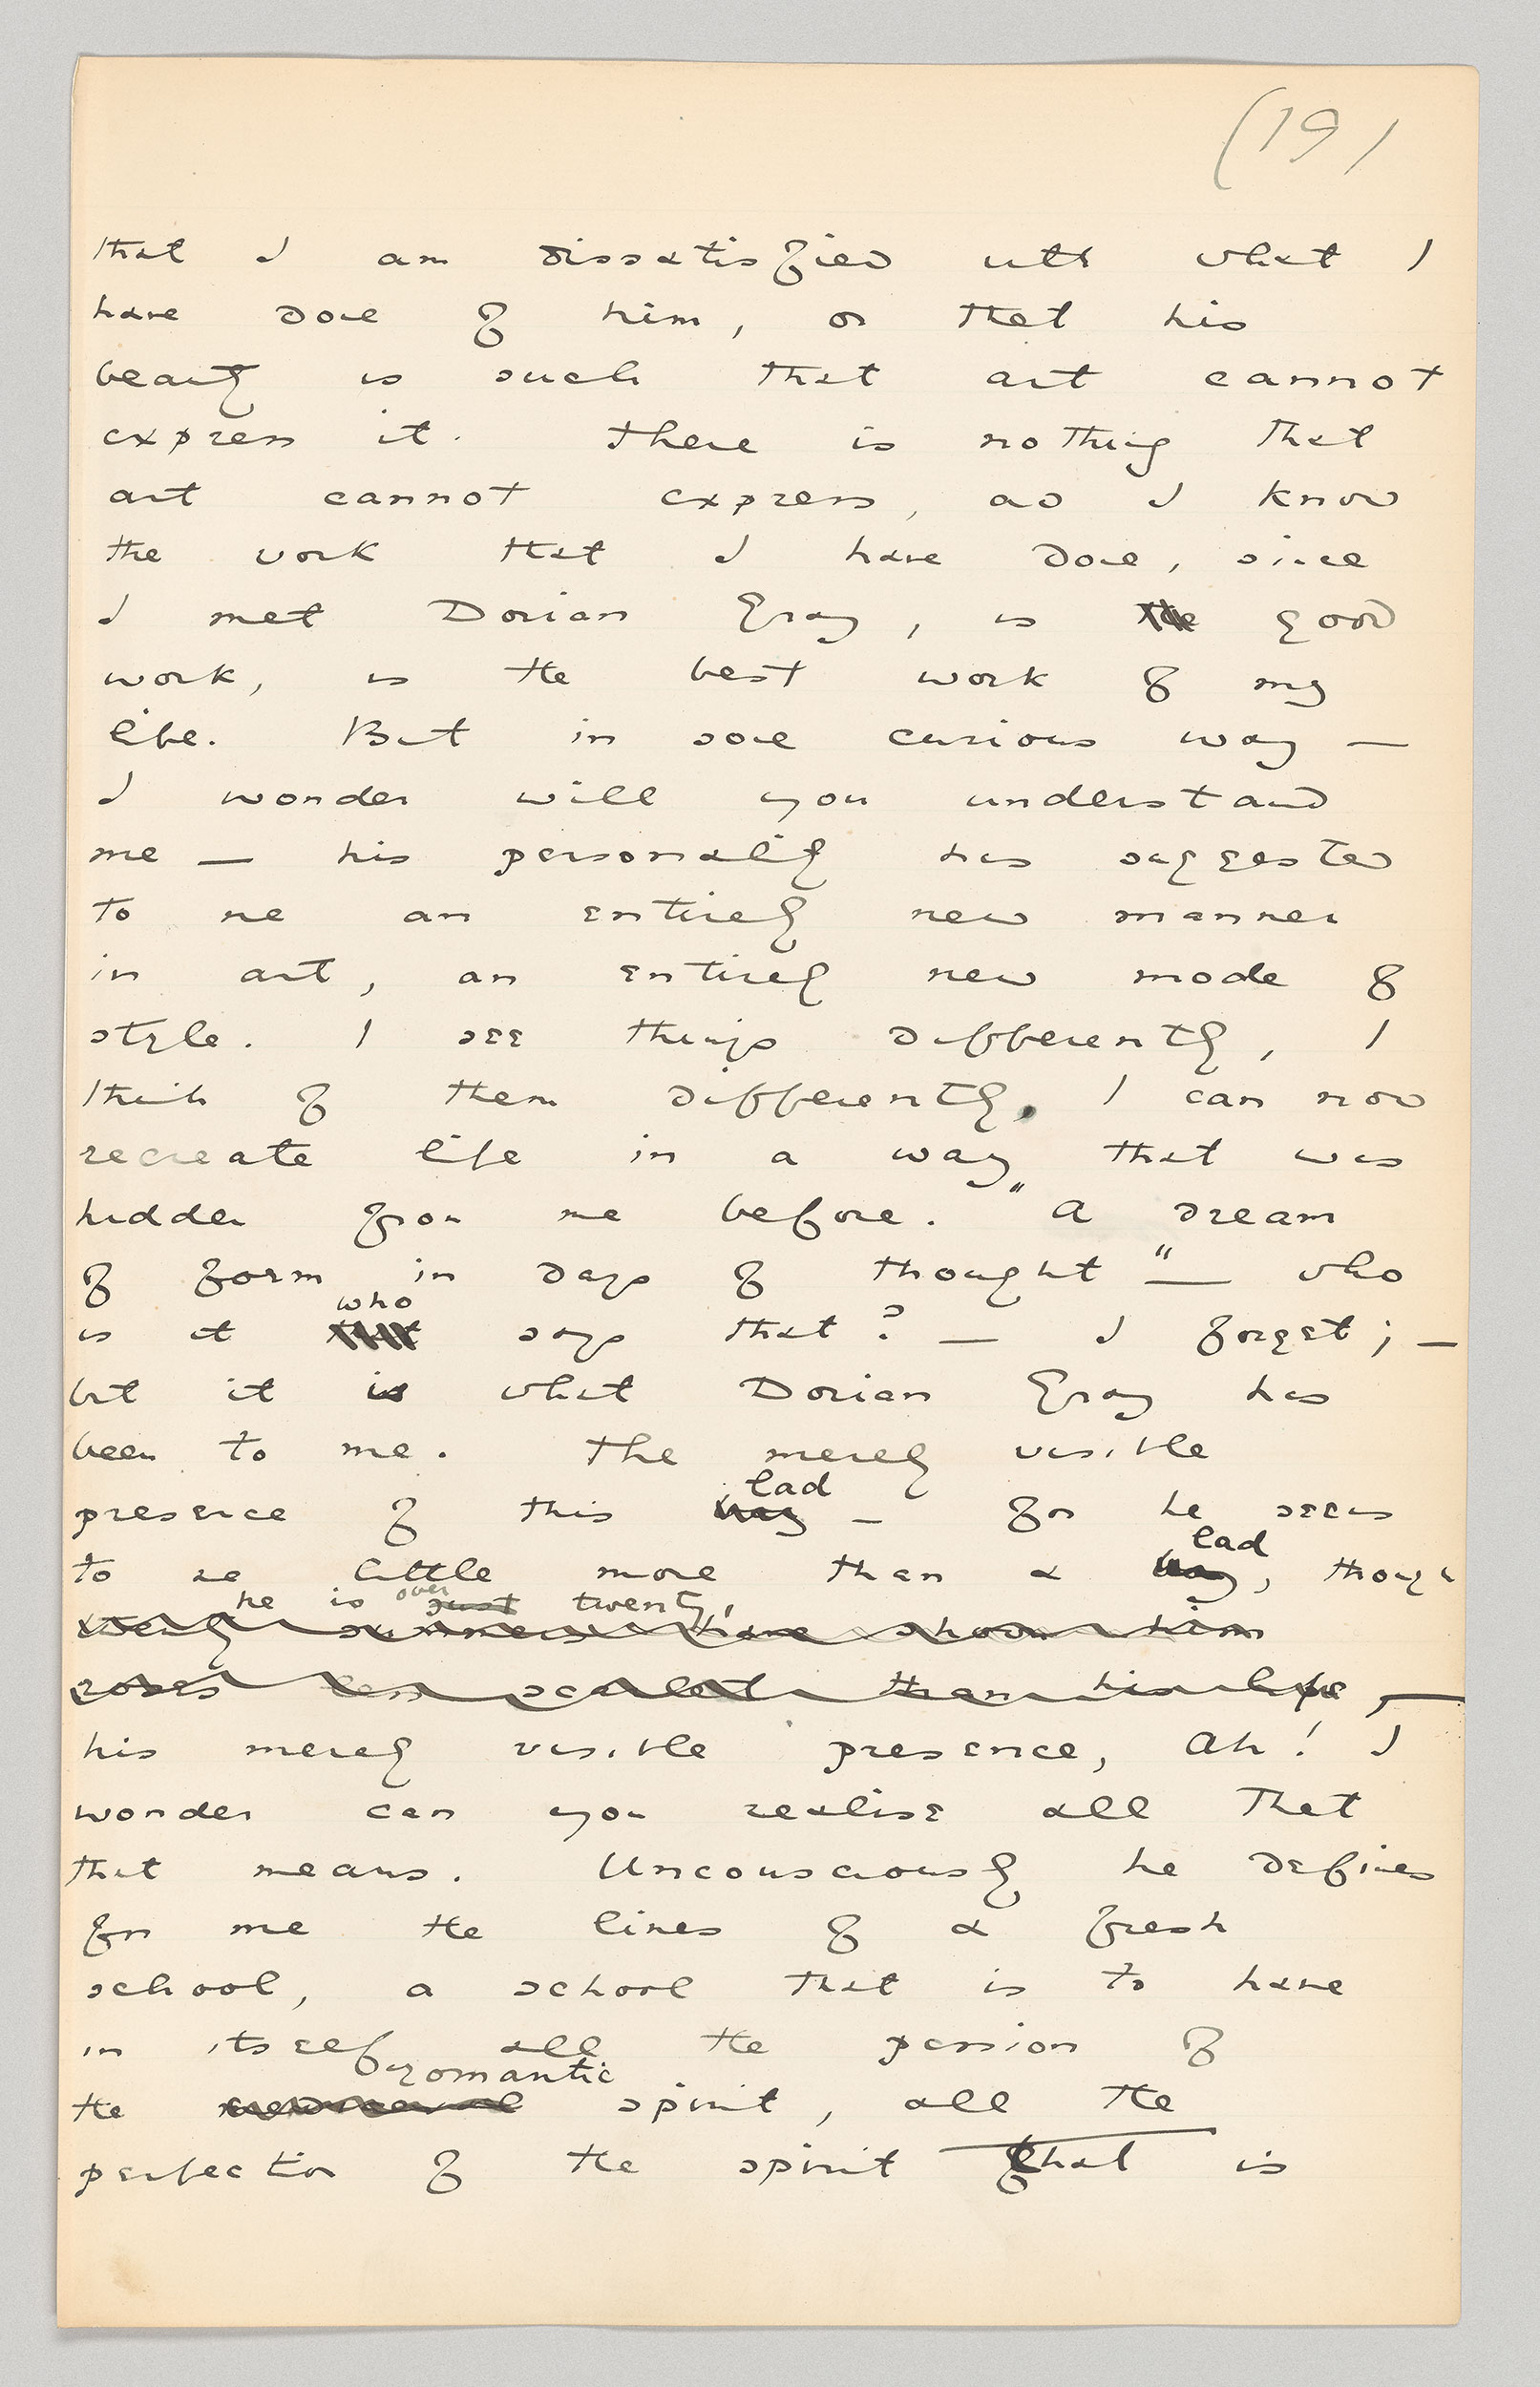 (19)
that I am dissatisfied with what I
have done of him, or that his
beauty is such that art cannot
express it. There is nothing that
art cannot express, and I know
the work that I have done, since
I met Dorian Gray, is the good
work, is the best work of my
life. But in some curious way —
I wonder will you understand
me — his personality has suggested
to me an entirely new manner
in art, an entirely new mode of
style. I see things differently, I
think of them differently. I can now
recreate life in a way that was
hidden from me before. "A dream
of form in days of thought" — who
who
is it that says that? — I forget; —
but it is what Dorian Gray has
been to me. The merely visible
lad
presence of this boy — for he seems
lad
to me little more than a boy, though
he is over just twenty,
twenty summers have shown him
roses less scarlet than his lips, —
his merely visible presence, Ah! I
wonder can you realise all that
that means. Unconsciously he defines
for me the lines of a fresh
school, a school that is to have
in itself all the passion of
romantic
the mediaeval spirit, all the
perfection of the spirit that is